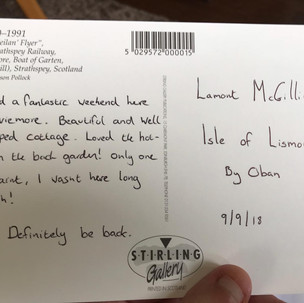 –1991
eilan' Flyer",
athspey Railway,
ore, Boat of Garten,
ill), Strathspey, Scotland
mon Pollock
d a fantastic weekend here
viemore. Beautiful and well
ped cottage. Loved the hot-
n the back garden! Only one
aint, I wasnt here long
h!
Definitely be back.
5029572000015
Lamont McGilli
Isle of Lismo
By Oban
9/9/18
STIRLING
Gallery